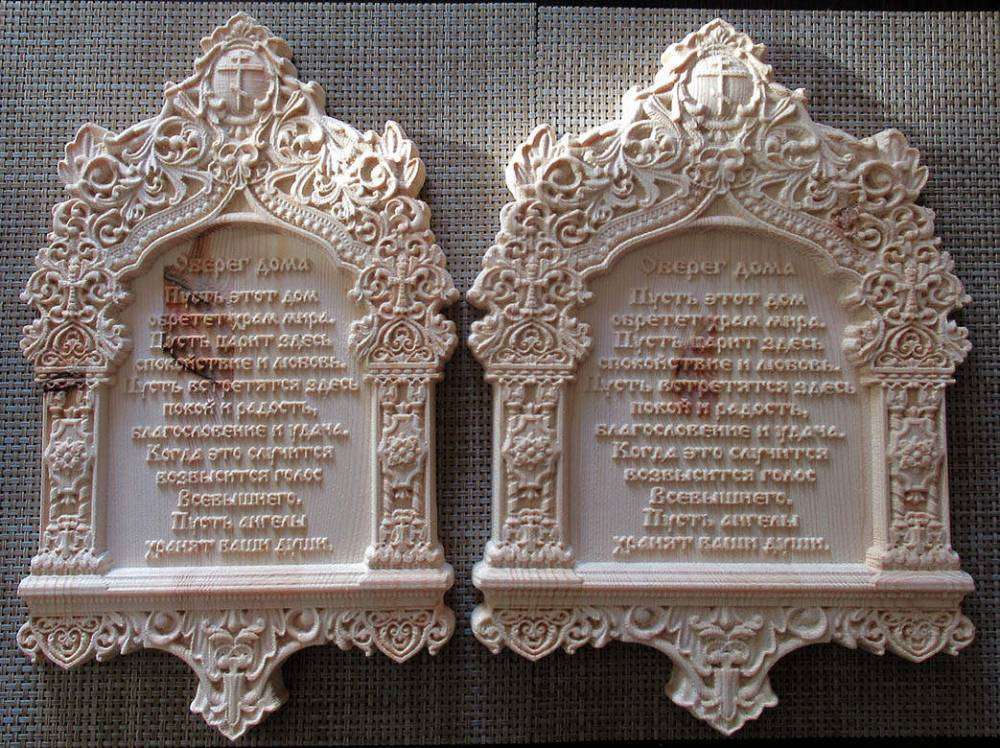 Оберег дома
Пусть этот дом
обретет храм мира.
Пусть царит здесь
спокойствие и любовь.
Пусть встретятся здесь
покой и радость,
благословение и удача.
Когда это случится
возвысится голос
Всевышнего.
Пусть ангелы
хранят ваши души.
Оберег дома
Пусть этот дом
обретет храм мира.
Пусть царит здесь
спокойствие и любовь.
Пусть встретятся здесь
покой и радость,
благословение и удача.
Когда это случится
возвысится голос
Всевышнего.
Пусть ангелы
хранят ваши души.